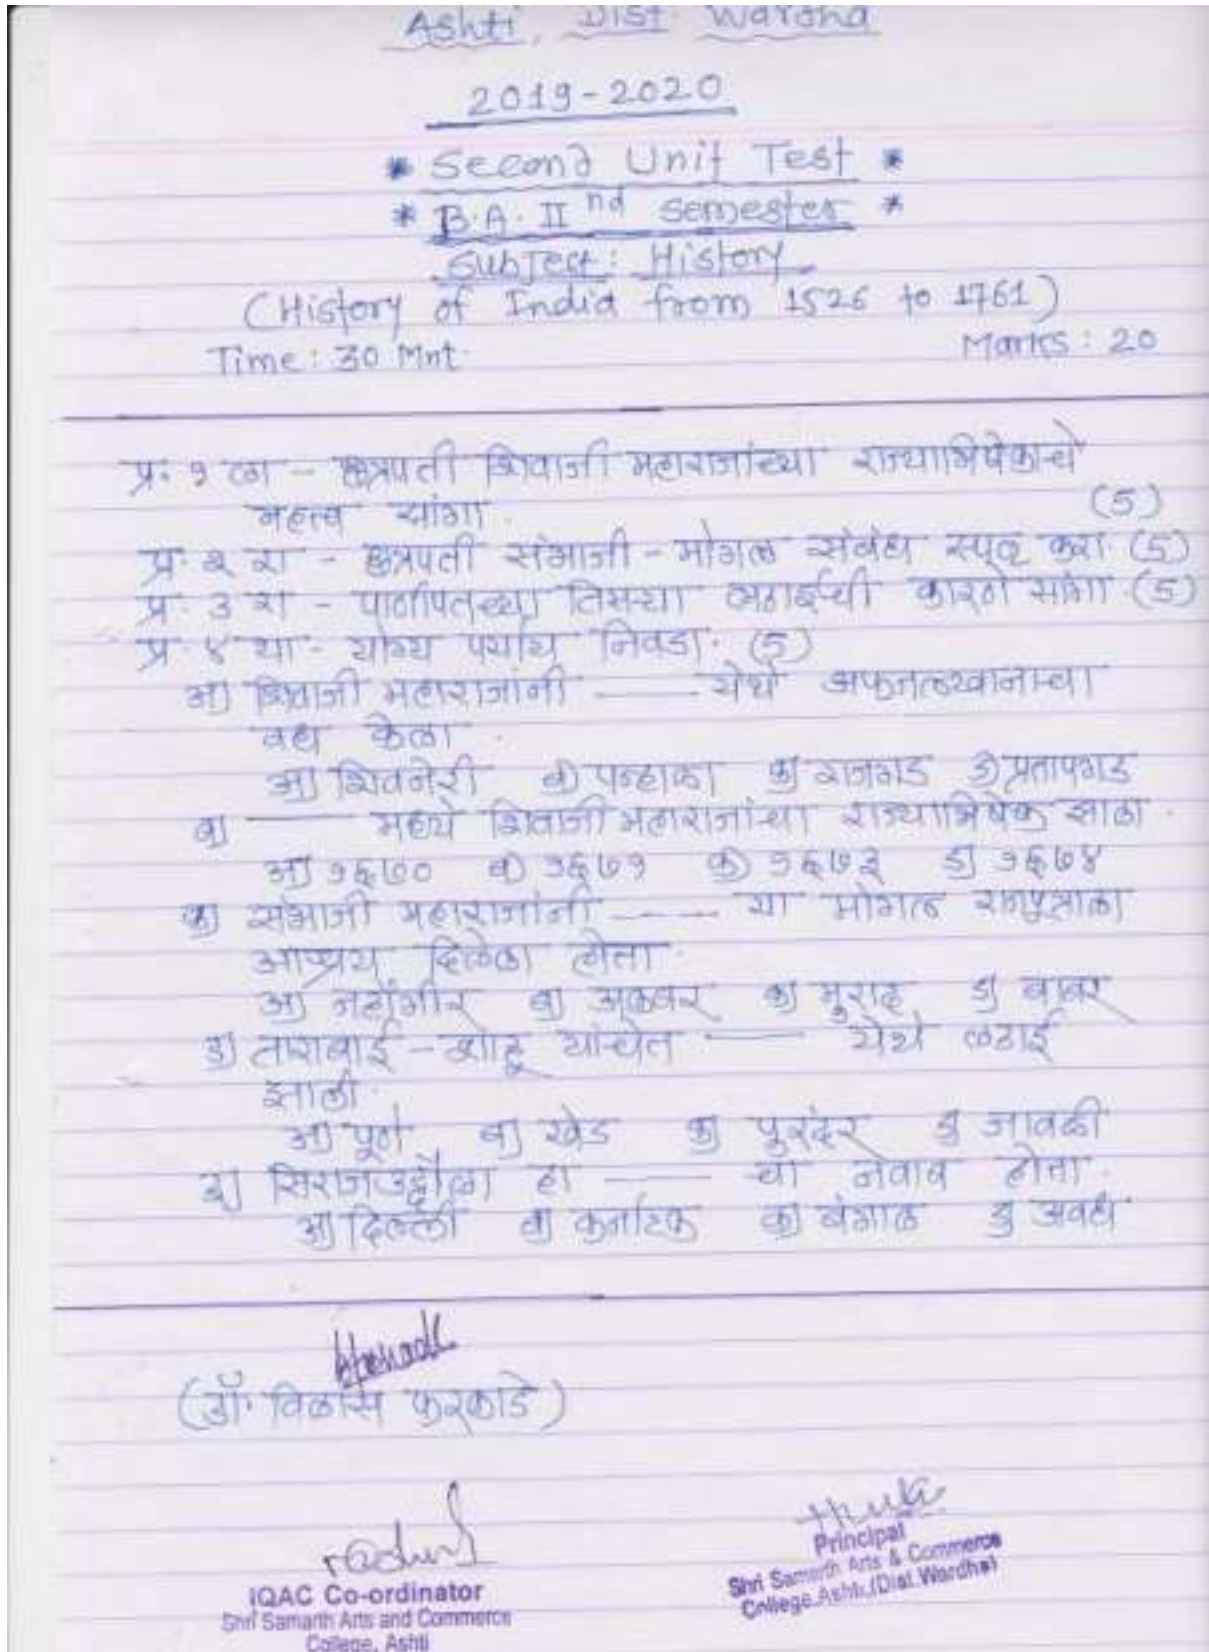 Ashti, Dist. Wardha
2019-2020
* Second Unit Test *
* B.A. II nd semester *
Subject: History
(History of India from 1526 to 1761)
Time: 30 Mnt.
Marks: 20
प्र. १ ला - छत्रपती शिवाजी महाराजांच्या राज्याभिषेकाचे
महत्व सांगा. (5)
प्र. २ रा - छत्रपती संभाजी - मोगल संबंध स्पष्ट करा. (5)
प्र. ३ रा - पाणीपतच्या तिसऱ्या लढाईची कारणे सांगा. (5)
प्र. ४ था - योग्य पर्याय निवडा. (5)
अ) शिवाजी महाराजांनी —— येथे अफजलखानाचा
वध केला.
अ) शिवनेरी ब) पन्हाळा क) राजगड ड) प्रतापगड
ब) —— मध्ये शिवाजी महाराजांचा राज्याभिषेक झाला.
अ) १६७० ब) १६७१ क) १६७३ ड) १६७४
क) संभाजी महाराजांनी —— या मोगल राजपुत्राला
आश्रय दिलेला होता.
अ) जहांगीर ब) अकबर क) मुराद ड) बाबर
ड) ताराबाई - शाहू यांचेत —— येथे लढाई
झाली.
अ) पूणे ब) खेड क) पुरंदर ड) जावळी
इ) सिराजउद्दौला हा —— चा नवाब होता.
अ) दिल्ली ब) कर्नाटक क) बंगाल ड) अवध
(डॉ. विळास कुरकाडे)
IQAC Co-ordinator
Shri Samarth Arts and Commerce
College, Ashti
Principal
Shri Samarth Arts & Commerce
College, Ashti, (Dist. Wardha)